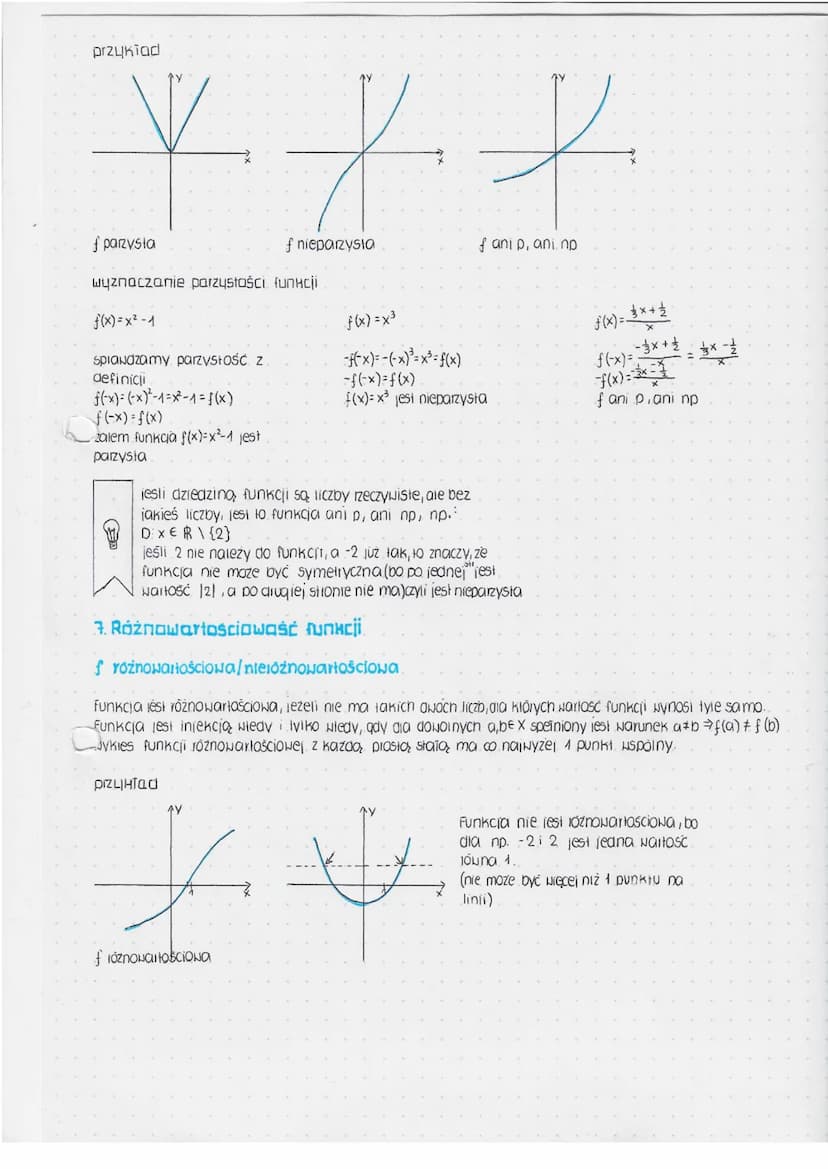 przykład
y
y
y
x
x
x
f parzysta
f nieparzysta
f ani p, ani np
wyznaczanie parzystości funkcji
f(x)=x²-1
sprawdzamy parzystość z
definicji
f(-x)=(-x)²-1=x²-1=f(x)
f(-x)=f(x)
zatem funkcja f(x)=x²-1 jest
parzysta
f(x)=x³
-f(-x)=-(-x)³=x³=f(x)
-f(-x)=f(x)
f(x)=x³ jest nieparzysta
f(x)=(⅓x+½)/x
f(-x)=(-⅓x+½)/-x = (⅓x-½)/x
-f(x)=(-⅓x-½)/x
f ani p, ani np
jeśli dziedziną funkcji są liczby rzeczywiste, ale bez
jakieś liczby, jest to funkcja ani p, ani np, np.:
D: x ∈ ℝ \ {2}
jeśli 2 nie należy do funkcji, a -2 już tak, to znaczy, że
funkcja nie może być symetryczna (bo po jednej jest
wartość |2|, a po drugiej stronie nie ma) czyli jest nieparzysta
7. Różnowartościowość funkcji
f różnowartościowa/nieróżnowartościowa
Funkcja jest różnowartościowa, jeżeli nie ma takich dwóch liczb, dla których wartość funkcji wynosi tyle samo.
Funkcja jest iniekcją wtedy i tylko wtedy, gdy dla dowolnych a,b∈X spełniony jest warunek a≠b ⇒ f(a) ≠ f(b)
Wykres funkcji różnowartościowej z każdą prostą stałą ma co najwyżej 1 punkt wspólny.
przykład
y
y
1
x
1
x
f różnowartościowa
Funkcja nie jest różnowartościowa, bo
dla np. -2 i 2 jest jedna wartość
równa 1.
(nie może być więcej niż 1 punktu na
linii)